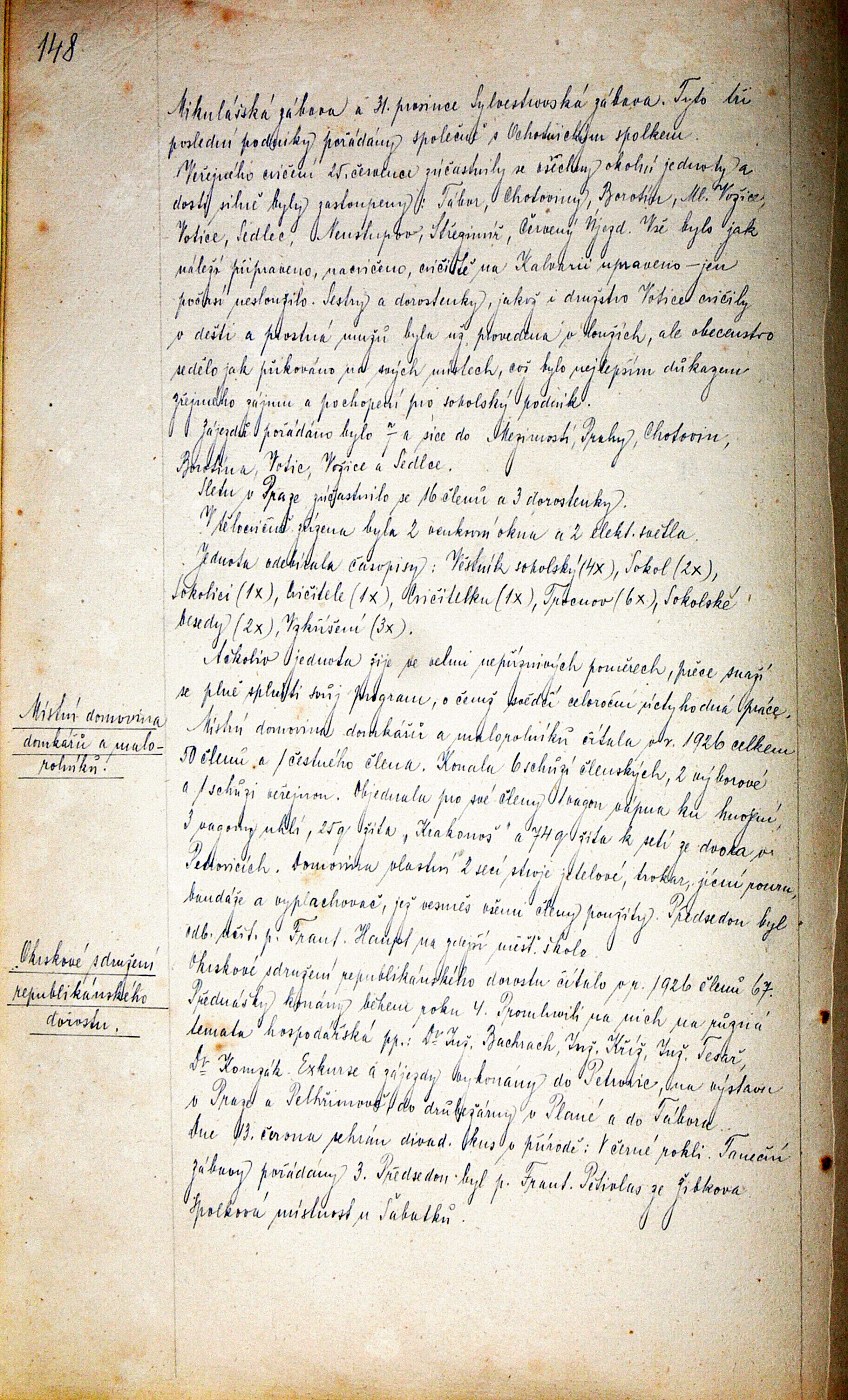 148
Mikulášská zábava a 31. prosince Sylvestrovská zábava. Tyto tři
poslední podniky pořádány společně s Ochotnickým spolkem.
Veřejného cvičení 25. července zúčastnily se všechny okolní jednoty a
dosti silně byly zastoupeny: Tábor, Chotoviny, Borotín, Ml. Vožice,
Votice, Sedlec, Neustupov, Střezimíř, Červený Újezd. Vše bylo jak
náleží připraveno, nacvičeno, cvičiště na Kalvarii upraveno – jen
počasí nesloužilo. Sestry a dorostenky, jakož i družstvo Votice cvičily
v dešti a prostná mužů byla už provedena v loužích, ale obecenstvo
sedělo jak přikováno na svých místech, což bylo nejlepším důkazem
zřejmého zájmu a pochopení pro sokolský podnik.
Zájezdů pořádáno bylo 7 a sice do Mezimostí, Prahy, Chotovin,
Borotína, Votic, Vožice a Sedlce.
Sletu v Praze zúčastnilo se 16 členů a 3 dorostenky.
V tělocvičně zřízena byla 2 venkovní okna a 2 elekt. světla.
Jednota odebírala časopisy: Věstník sokolský (4x), Sokol (2x),
Sokolici (1x), Cvičitele (1x), Cvičitelku (1x), Trocnov (6x), Sokolské
besedy (2x), Vzkříšení (3x).
Ačkoliv jednota žije ve velmi nepříznivých poměrech, přece snaží
se plně splniti svůj program, o čemž svědčí celoroční úctyhodná práce.
Místní domovina
domkářů a malo-
rolníků.
Místní domovina domkářů a malorolníků čítala v r. 1926 celkem
50 členů a 1 čestného člena. Konala 6 schůzí členských, 2 výborové
a 1 schůzi veřejnou. Objednala pro své členy 1 vagon vápna ku hnojení,
3 vagony uhlí, 25 q žita „Krakonoš" a 74 q žita k setí ze dvora v
Petrovicích. Domovina vlastní 2 secí stroje jetelové, trokar, jícní rouru,
bandáže a vyplachovač, jež vesměs všemi členy použity. Předsedou byl
odb. učit. p. Frant. Haupt na zdejší měšť. škole.
Okrskové sdružení
republikánského
dorostu.
Okrskové sdružení republikánského dorostu čítalo v r. 1926 členů 67.
Přednášky konány během roku 4. Promluvili na nich na různá
temata hospodářská pp.: Dr Ing. Bachrach, Ing. Kříž, Ing. Tesař,
Dr Komzák. Exkurse a zájezdy vykonány do Petrovic, na výstavu
v Praze a Pelhřimově, do drůbežárny v Plané a do Tábora.
Dne 13. června sehrán divad. kus v přírodě: V černé rokli. Taneční
zábavy pořádány 3. Předsedou byl p. Frant. Petrolas ze Žibkova.
Spolková místnost u Šabatků.